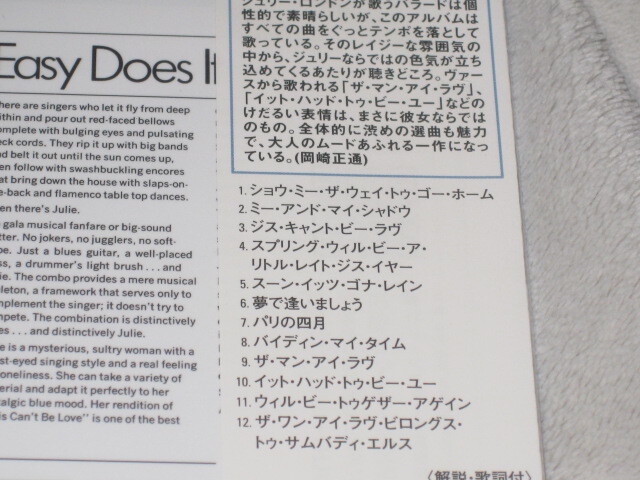 Easy Does It
here are singers who let it fly from deep
ithin and pour out red-faced bellows
omplete with bulging eyes and pulsating
eck cords. They rip up with big bands
nd belt it out until the sun comes up,
en follow with swashbuckling encores
at bring down the house with slaps-on-
e-back and flamenco table top dances.
en there's Julie.
gala musical fanfare or big-sound
tter. No jokers, no jugglers, no soft-
oe. Just a blues guitar, a well-placed
ss, a drummer's light brush . . . and
ie. The combo provides a mere musical
eleton, a framework that serves only to
mplement the singer; it doesn't try to
mpete. The combination is distinctively
es . . . and distinctively Julie.
e is a mysterious, sultry woman with a
st-eyed singing style and a real feeling
oneliness. She can take a variety of
erial and adapt it perfectly to her
talgic blue mood. Her rendition of
is Can't Be Love" is one of the best
ジュリー・ロンドンが歌うバラードは個
性的で素晴らしいが、このアルバムは
すべての曲をぐっとテンポを落として
歌っている。そのレイジーな雰囲気の
中から、ジュリーならではの色気が立ち
込めてくるあたりが聴きどころ。ヴァー
スから歌われる「ザ・マン・アイ・ラヴ」、
「イット・ハッド・トゥ・ビー・ユー」などの
けだるい表情は、まさに彼女ならでは
のもの。全体的に渋めの選曲も魅力
で、大人のムードあふれる一作になっ
ている。(岡崎正通)
1. ショウ・ミー・ザ・ウェイ・トゥ・ゴー・ホーム
2. ミー・アンド・マイ・シャドウ
3. ジス・キャント・ビー・ラヴ
4. スプリング・ウィル・ビー・ア・
リトル・レイト・ジス・イヤー
5. スーン・イッツ・ゴナ・レイン
6. 夢で逢いましょう
7. パリの四月
8. バイディン・マイ・タイム
9. ザ・マン・アイ・ラヴ
10. イット・ハッド・トゥ・ビー・ユー
11. ウィル・ビー・トゥゲザー・アゲイン
12. ザ・ワン・アイ・ラヴ・ビロングス・
トゥ・サムバディ・エルス
〈解説・歌詞付〉